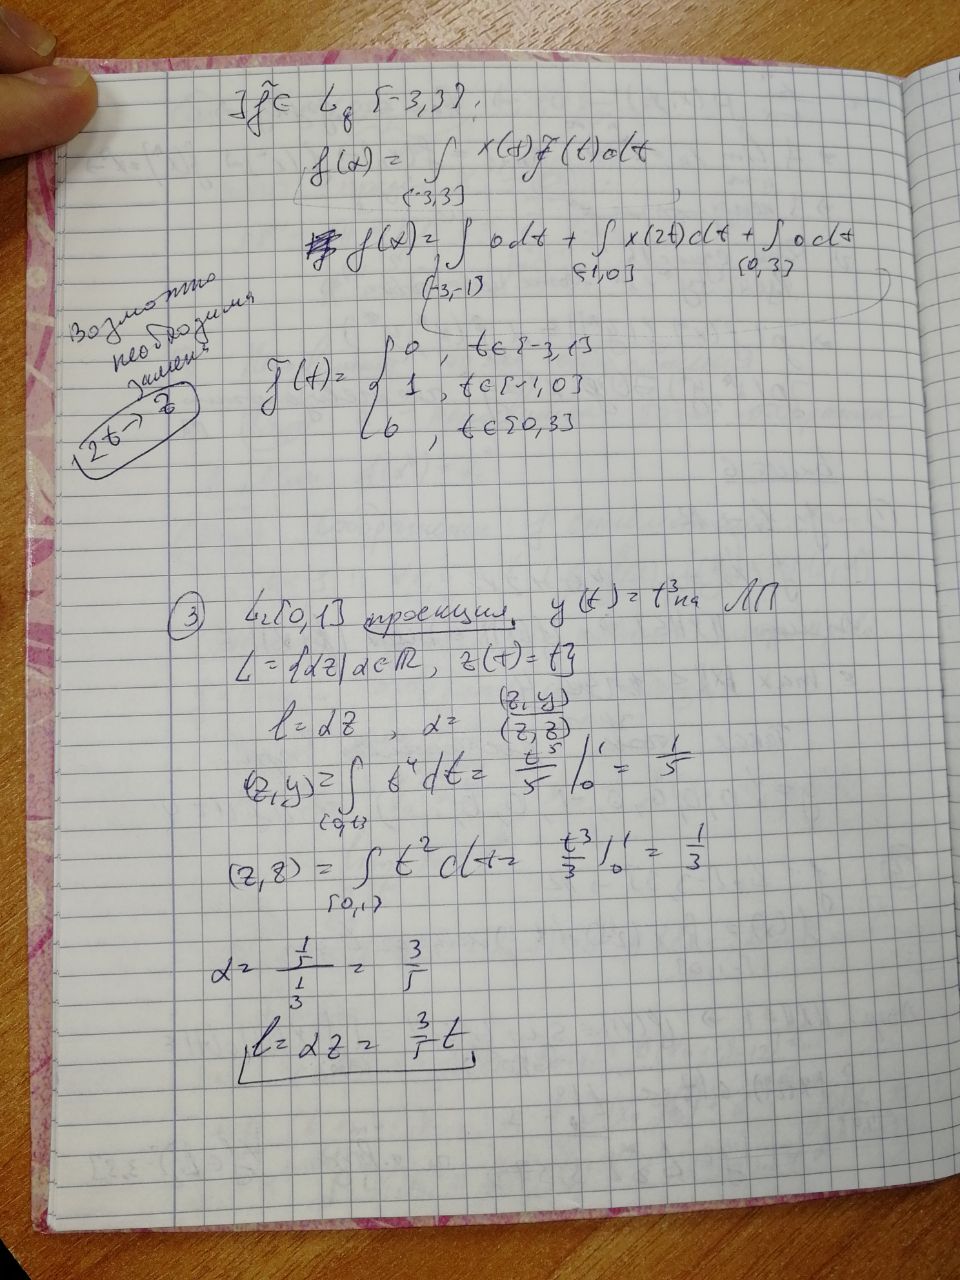 ∃ f̃ ∈ L_q [-3,3],
f(x) = ∫_{[-3,3]} x(t) f̃(t) dt
f(x) = ∫_{[-3,-1]} 0dt + ∫_{[-1,0]} x(2t)dt + ∫_{[0,3]} 0 dt
Возможно
необходима
замена
2t → z
f̃(t) = { 0, t∈[-3,1]
1, t∈[-1,0]
0, t∈[0,3]
③ L₂[0,1] проекция y(t) = t³ на ЛП
L = {αz | α∈ℝ, z(t) = t}
l = αz, α = (z,y)/(z,z)
(z,y) = ∫_{[0,1]} t⁴dt = t⁵/5 |₀¹ = 1/5
(z,z) = ∫_{[0,1]} t² dt = t³/3 |₀¹ = 1/3
α = (1/5)/(1/3) = 3/5
l = αz = 3/5 t